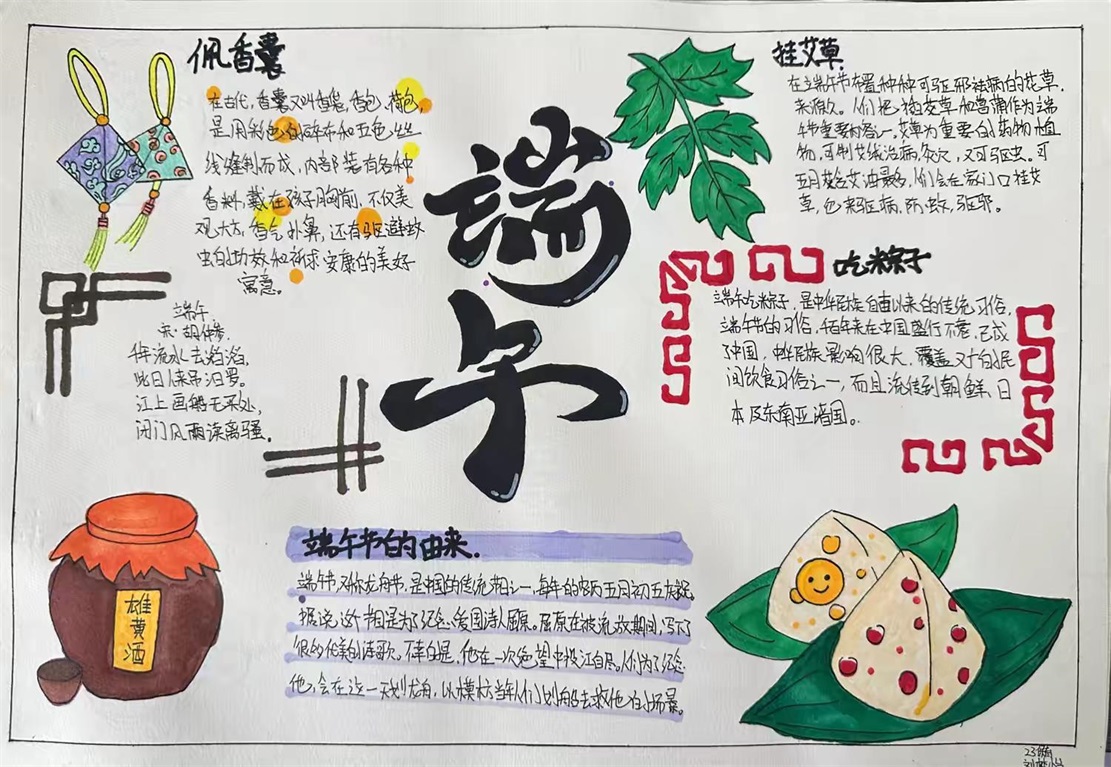 佩香囊
在古代,香囊又叫香袋,香包,荷包,
是用彩色的碎布和五色丝
线缝制而成,内部装有各种
香料,戴在孩子胸前,不仅美
观大方,香气扑鼻,还有驱避蚊
虫的功效和祈求安康的美好
寓意。
端午
宋·胡仲参
年年流水去滔滔,
此日人来吊汨罗。
江上画船无采处,
闭门风雨读离骚。
端午
挂艾草
在端午节布置种种可驱邪祛病的花草,
来源久。人们把插艾草和菖蒲作为端
午节重要内容之一,艾草为重要的药物植
物,可制艾绒治病,灸穴,又可驱虫。
五月艾含艾油最多,人们会在家门口挂艾
草,也来驱病,防蚊,驱邪。
吃粽子
端午吃粽子,是中华民族自古以来的传统习俗,
端午节的习俗,千百年来在中国盛行不衰,已成
了中国,中华民族影响很大,覆盖又广的民
间饮食习俗之一,而且流传到朝鲜,日
本及东南亚诸国。
雄黄酒
端午节的由来.
端午节又称龙舟节,是中国的传统节日之一,每年的农历五月初五庆祝。
据说这个节日是为了纪念爱国诗人屈原。屈原在被流放期间,写下了
很多优美的诗歌。不幸的是,他在一次绝望中投江自尽。人们为了纪念
他,会在这一天划龙舟,以模仿当年人们划船去救他的场景。